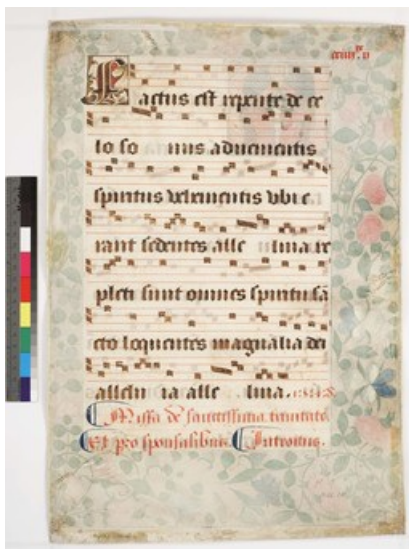 Factus est repente de ce
lo so nus advenientis
spiritus vehementis ubi e
rant sedentes alle luia re
pleti sunt omnes spiritu sā
cto loquentes magnalia dei
allelu ia alle luia.
Missa de sanctissima trinitate
Et pro sponsalibus. Introitus.